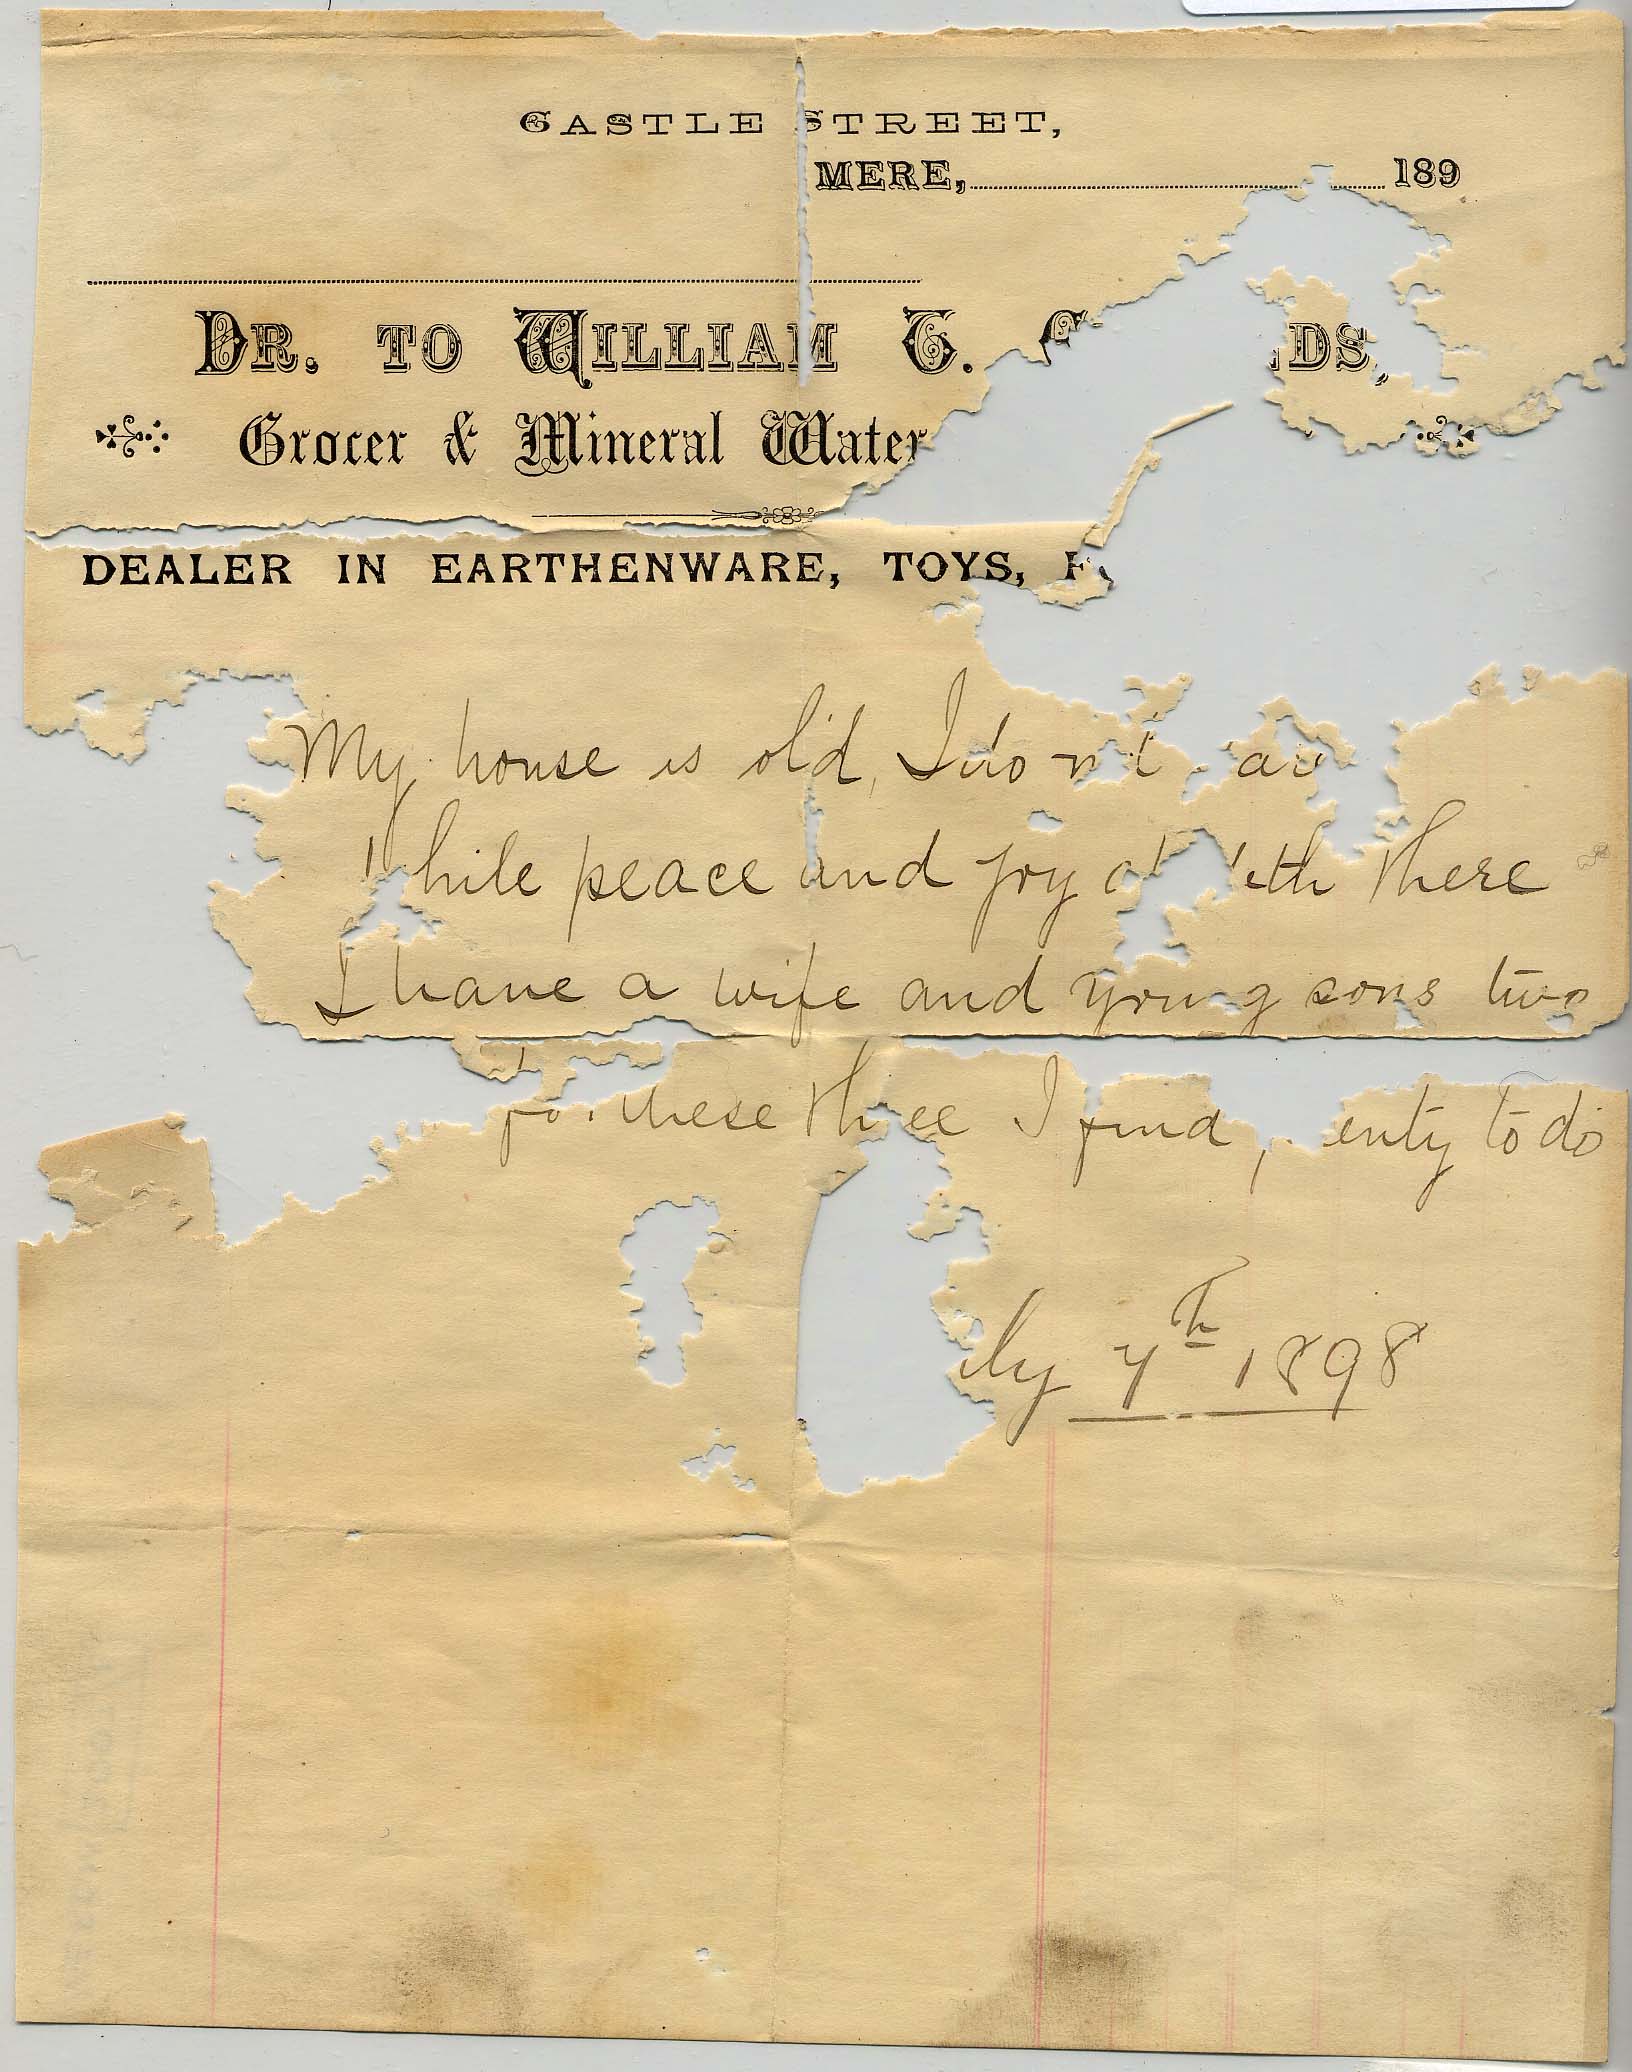 CASTLE STREET,
MERE, 189
DR. TO WILLIAM T.
Grocer & Mineral Water
DEALER IN EARTHENWARE, TOYS,
My house is old, I don't
While peace and joy there
I have a wife and young sons two
For these three I find plenty to do
7th 1898